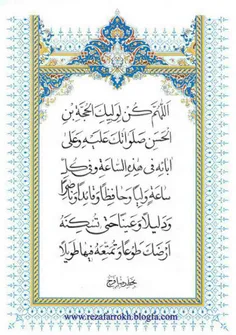 اللهم كن لوليك الحجة بن
الحسن صلواتك عليه وعلى
آبائه في هذه الساعة وفي كل
ساعة وليا وحافظا وقائدا وناصرا
ودليلا وعينا حتى تسكنه
أرضك طوعا وتمتعه فيها طويلا
www.rezafarrokh.blogfa.com